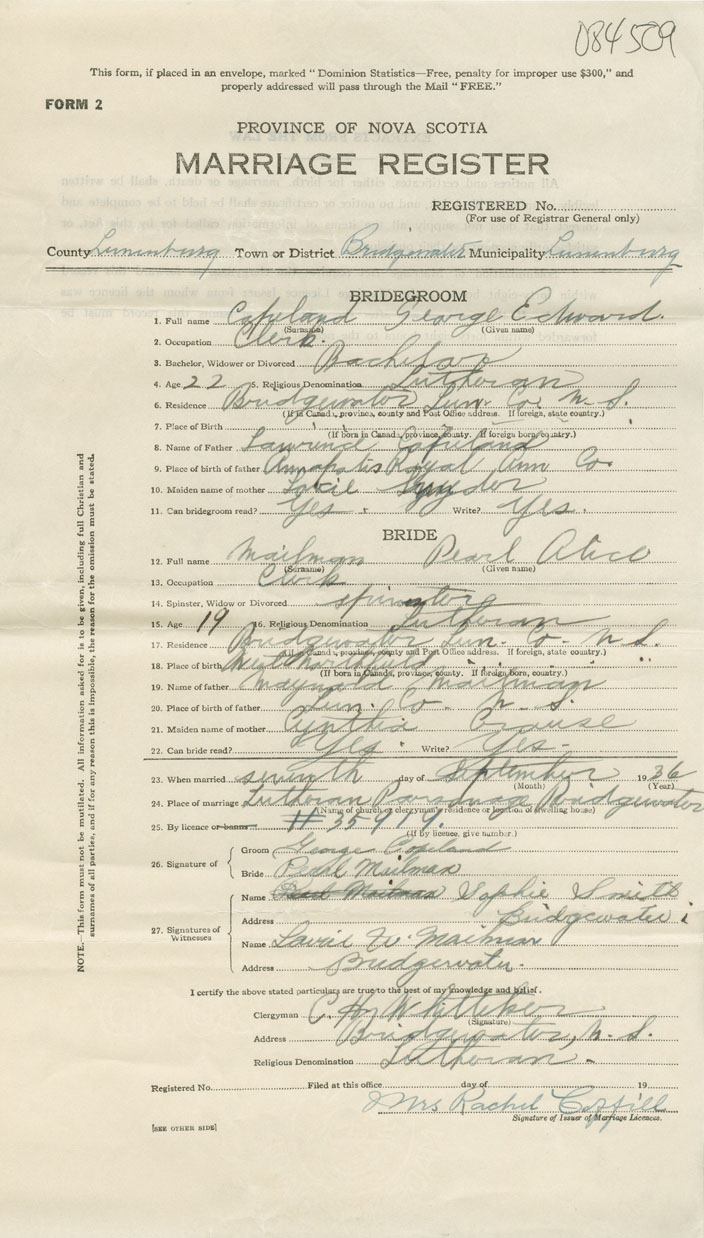 084509
This form, if placed in an envelope, marked "Dominion Statistics—Free, penalty for improper use $300," and
properly addressed will pass through the Mail "FREE."
FORM 2
PROVINCE OF NOVA SCOTIA
MARRIAGE REGISTER
REGISTERED No.
(For use of Registrar General only)
County Lunenburg Town or District Bridgewater Municipality Lunenburg
BRIDEGROOM
1. Full name Copeland George Edward.
(Surname) (Given name)
2. Occupation Clerk.
3. Bachelor, Widower or Divorced Bachelor
4. Age 22 5. Religious Denomination Lutheran
6. Residence Bridgewater Lun. Co. N. S.
(If in Canada, province, county and Post Office address. If foreign, state country.)
7. Place of Birth " " "
(If born in Canada, province, county. If foreign born, country.)
8. Name of Father Lawrence Copeland
9. Place of birth of father Annapolis Royal Ann Co.
10. Maiden name of mother Snyder
11. Can bridegroom read? Yes Write? Yes.
BRIDE
12. Full name Mailman Pearl Alice
(Surname) (Given name)
13. Occupation Clerk
14. Spinster, Widow or Divorced
15. Age 19 16. Religious Denomination Lutheran
17. Residence Bridgewater Lun. Co. N. S.
(If in Canada, province, county and Post Office address. If foreign, state country.)
18. Place of birth West Northfield " " "
(If born in Canada, province, county. If foreign born, country.)
19. Name of father Maynald Mailman
20. Place of birth of father Lun. Co. N. S.
21. Maiden name of mother Cynthia Crouse
22. Can bride read? Yes Write? Yes-
23. When married seventh day of September 1936
(Month) (Year)
24. Place of marriage Lutheran Parsonage Bridgewater
(Name of church or clergyman's residence or location of dwelling house)
25. By licence or banns #35919.
(If by licence, give number.)
26. Signature of
Groom George Copeland
Bride Pearl Mailman
27. Signatures of Witnesses
Name Pearl Mailman Sophie Smith
Address Bridgewater
Name Laurie W. Mailman
Address Bridgewater.
I certify the above stated particulars are true to the best of my knowledge and belief.
Clergyman C. Hy Whitteker
(Signature)
Address Bridgewater, N. S.
Religious Denomination Lutheran.
Registered No. Filed at this office day of 19
Mrs Rachel Coffill
Signature of Issuer of Marriage Licences.
[SEE OTHER SIDE]
NOTE.—This form must not be mutilated. All information asked for is to be given, including full Christian and
surnames of all parties, and if for any reason this is impossible, the reason for the omission must be stated.